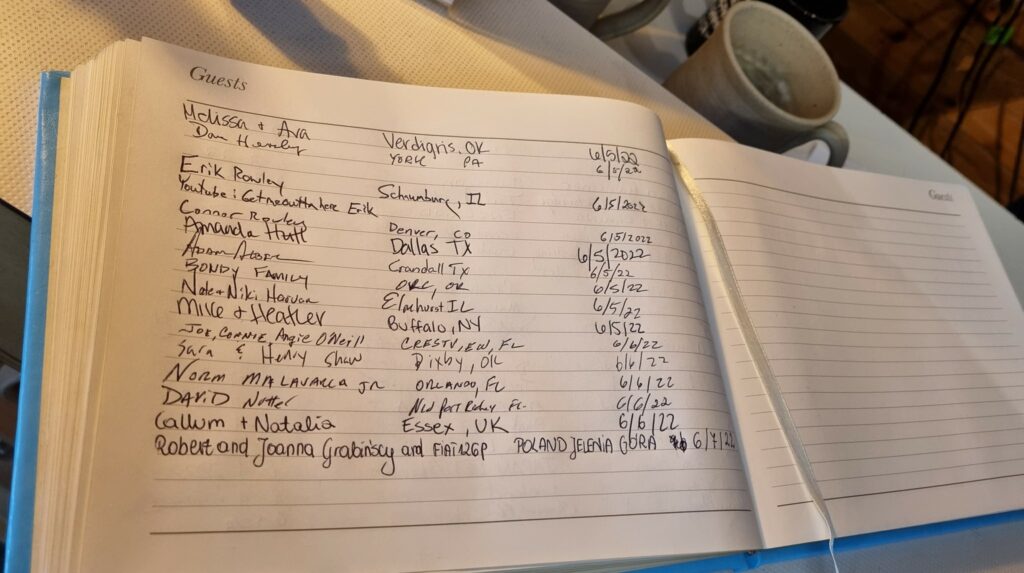 Guests
Melissa + Ava Verdigris, OK 6/5/22
Dan YORK PA 6/5/22
Erik Rowley
Youtube: Getmeouttahere Erik Schumburg, IL 6/5/2022
Connor Rowley Denver, CO 6/5/2022
Amanda Hutt Dallas TX 6/5/2022
Adam Crandall TX 6/5/22
BONDY FAMILY OKC, OK 6/5/22
Nate + Niki Elmhurst IL 6/5/22
Mike & Heather Buffalo, NY 6/5/22
JOE, CONNIE, Angie O'Neill CRESTVIEW, FL 6/6/22
Sara & Henry Shaw Bixby, OK 6/6/22
NORM JR ORLANDO, FL 6/6/22
DAVID New Port Richey FL. 6/6/22
Callum + Natalia Essex, UK 6/6/22
Robert and Joanna Grabińscy and FIAT 126P POLAND JELENIA GÓRA 6/7/22
Guests